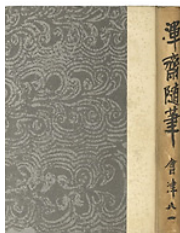 渾齋隨筆
會津八一